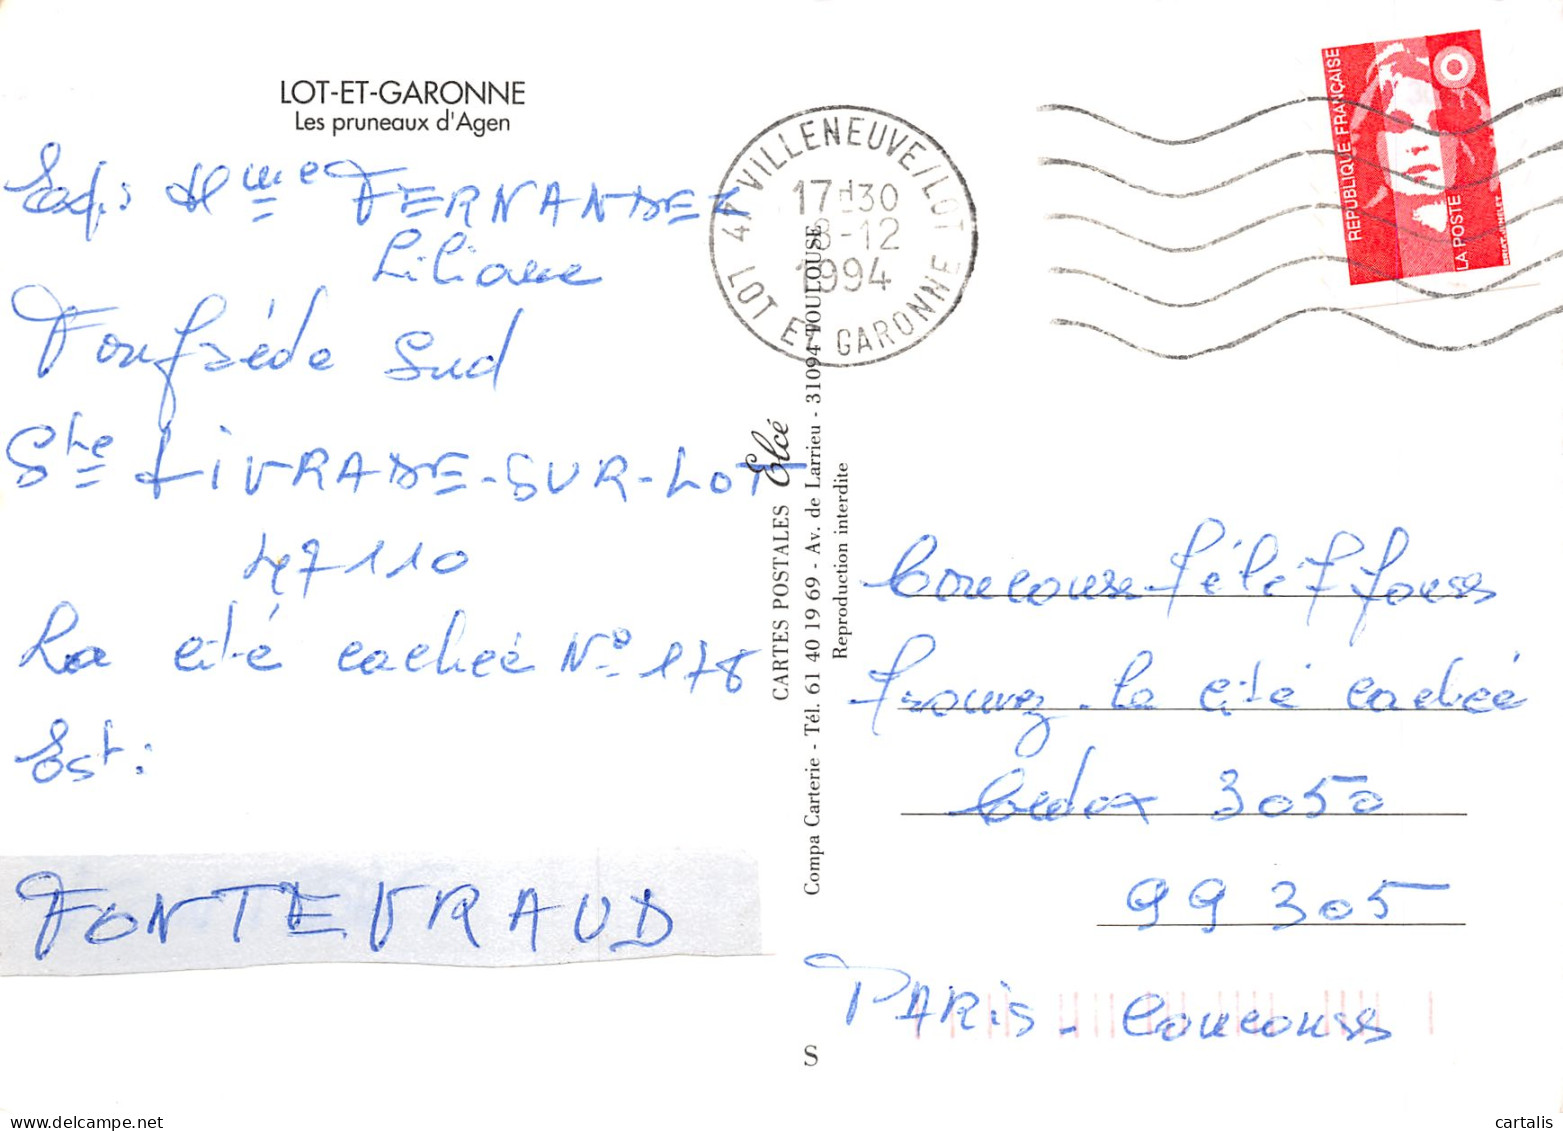 LOT-ET-GARONNE
Les pruneaux d'Agen
Exp: Mme FERNANDEZ
Liliane
Fonfrède Sud
Ste LIVRADE-SUR-LOT
47110
La cité cachée N° 178
Est:
FONTEVRAUD
47 VILLENEUVE/LOT
17H30
8-12
1994
LOT ET GARONNE
REPUBLIQUE FRANÇAISE
LA POSTE
CARTES POSTALES Elcé
Compa Carterie - Tél. 61 40 19 69 - Av. de Larrieu - 31094 TOULOUSE
Reproduction interdite
Concours Télé 7 Jours
Trouvez la cité cachée
Cedex 3050
99 305
PARIS - Concours
S
cartalis